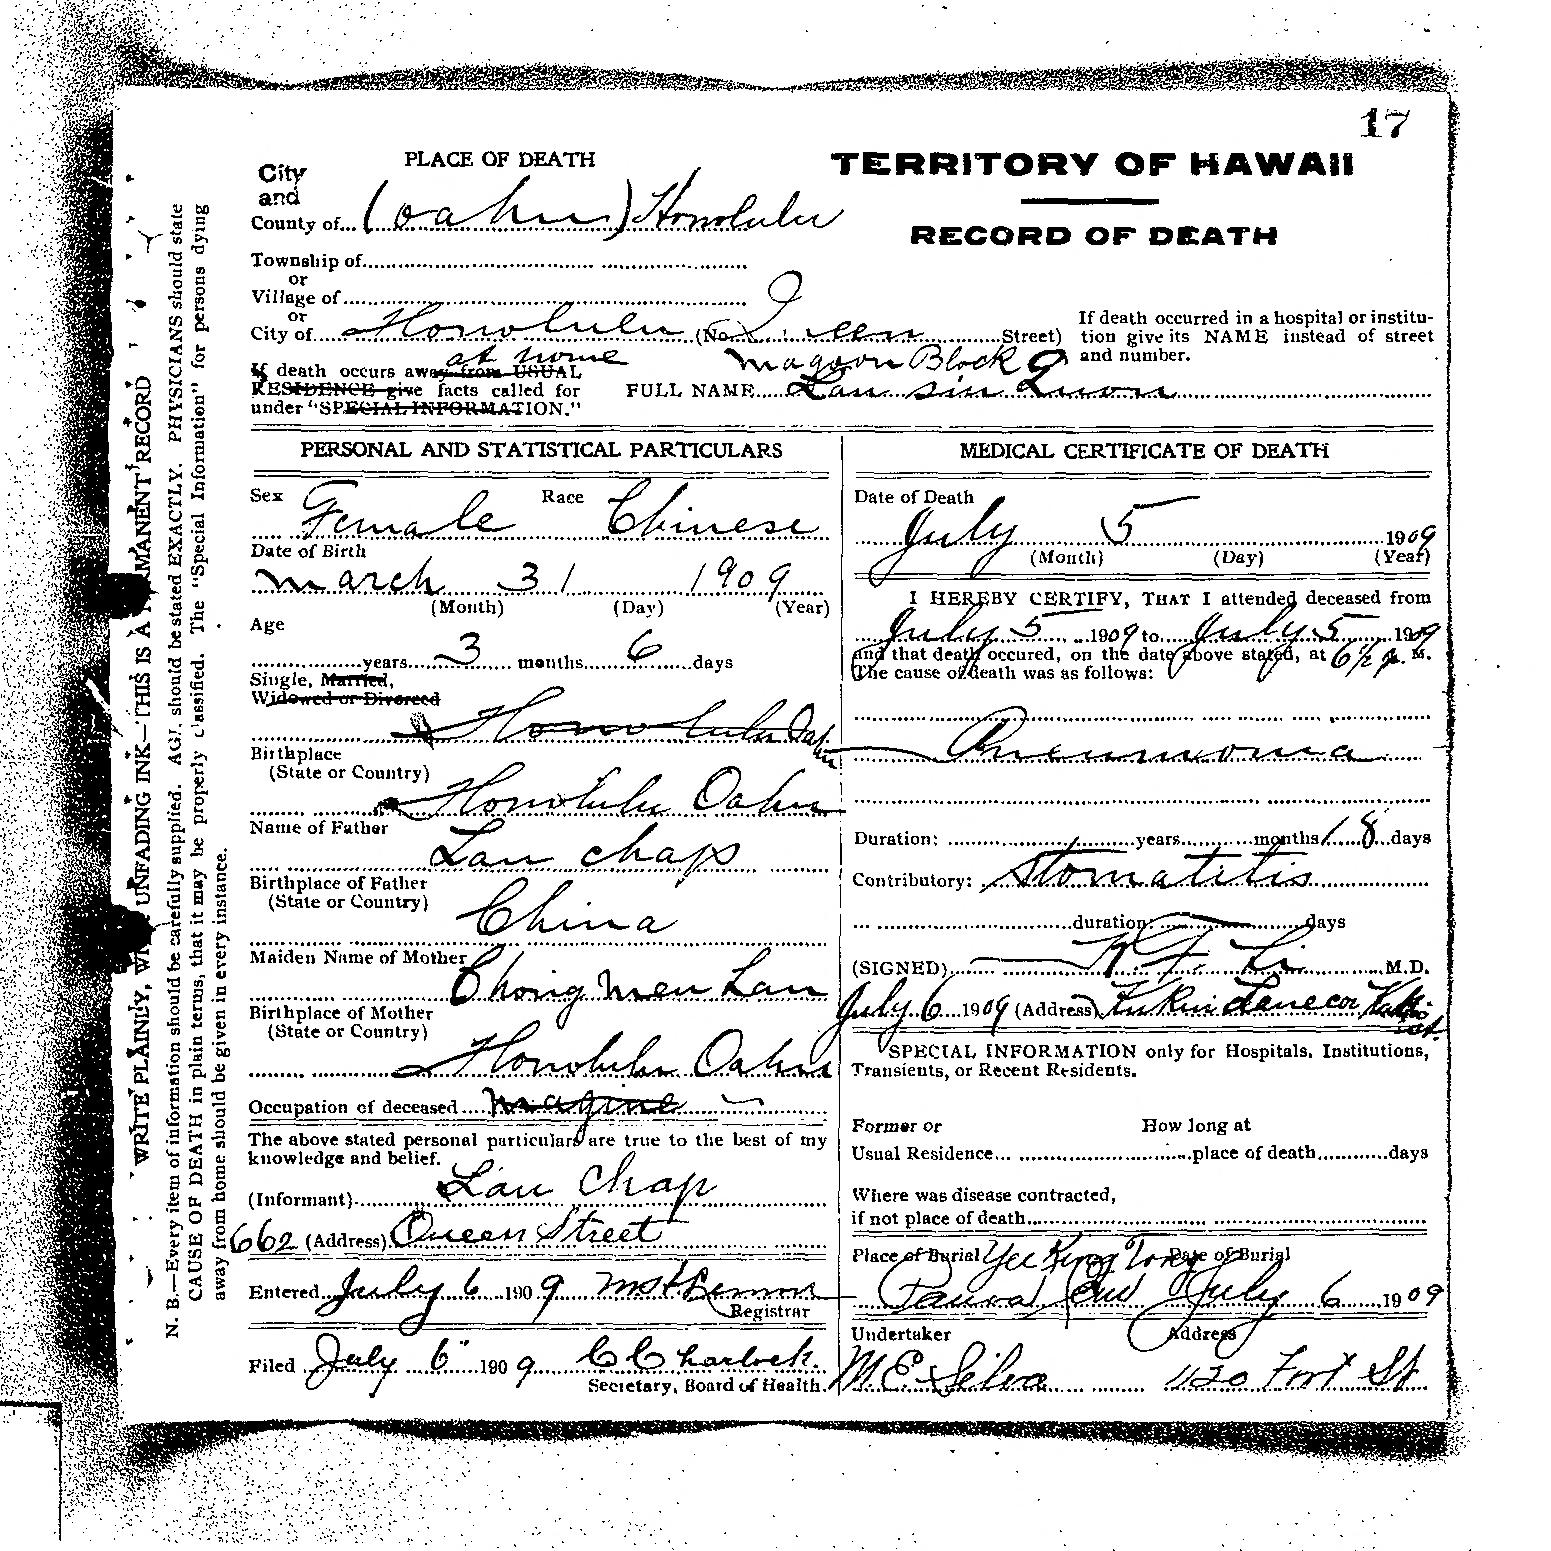 17
PLACE OF DEATH
TERRITORY OF HAWAII
RECORD OF DEATH
City
and
County of (Oahu) Honolulu
Township of
or
Village of
or
City of Honolulu (No. Queen Street)
If death occurred in a hospital or institu-
tion give its NAME instead of street
and number.
at home
Magoon Block
If death occurs away from USUAL
RESIDENCE give facts called for
under "SPECIAL INFORMATION."
FULL NAME Lau Sin Quon
PERSONAL AND STATISTICAL PARTICULARS
Sex Female Race Chinese
Date of Birth
March 31 1909
(Month) (Day) (Year)
Age
years 3 months 6 days
Single, Married,
Widowed or Divorced
Honolulu Oahu
Birthplace
(State or Country)
Honolulu Oahu
Name of Father
Lau Chap
Birthplace of Father
(State or Country)
China
Maiden Name of Mother
Chong Mew Lan
Birthplace of Mother
(State or Country)
Honolulu Oahu
Occupation of deceased
The above stated personal particulars are true to the best of my
knowledge and belief.
(Informant) Lau Chap
662 (Address) Queen Street
Entered July 6 1909
Registrar
Filed July 6 1909 C C Charlock.
Secretary, Board of Health.
MEDICAL CERTIFICATE OF DEATH
Date of Death
July 5 1909
(Month) (Day) (Year)
I HEREBY CERTIFY, THAT I attended deceased from
July 5 1909 to July 5 1909
and that death occured, on the date above stated, at 6½ P. M.
The cause of death was as follows:
Pneumonia
Duration: years months 18 days
Contributory: Stomatitis
duration: days
(SIGNED) K. F. Li M.D.
July 6 1909 (Address) Kukui Lane cor
SPECIAL INFORMATION only for Hospitals, Institutions,
Transients, or Recent Residents.
Former or How long at
Usual Residence place of death days
Where was disease contracted,
if not place of death
Place of Burial Date of Burial
Pauoa July 6 1909
Undertaker Address
M. E. Silva 1120 Fort St
WRITE PLAINLY, UNFADING INK—THIS IS A PERMANENT RECORD
N. B.—Every item of information should be carefully supplied. AGE should be stated EXACTLY. PHYSICIANS should state
CAUSE OF DEATH in plain terms, that it may be properly classified. The "Special Information" for persons dying
away from home should be given in every instance.